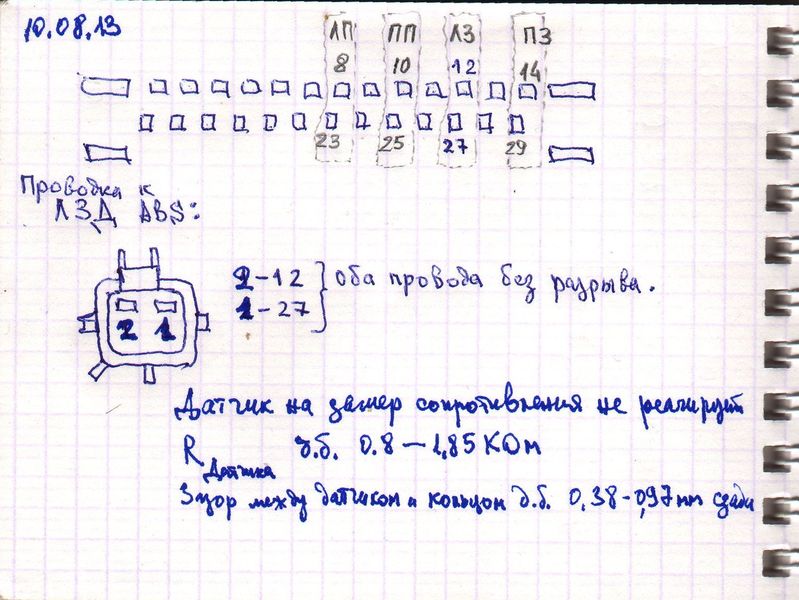 10.08.13
ЛП ПП ЛЗ ПЗ
8 10 12 14
23 25 27 29
Проводка к
ЛЗД ABS:
2-12
1-27
оба провода без разрыва.
2 1
Датчик на замер сопротивления не реагирует
R Датчика д.б. 0.8 – 1,85 КОм
Зазор между датчиком и кольцом д.б. 0,38-0,97 mm сзади